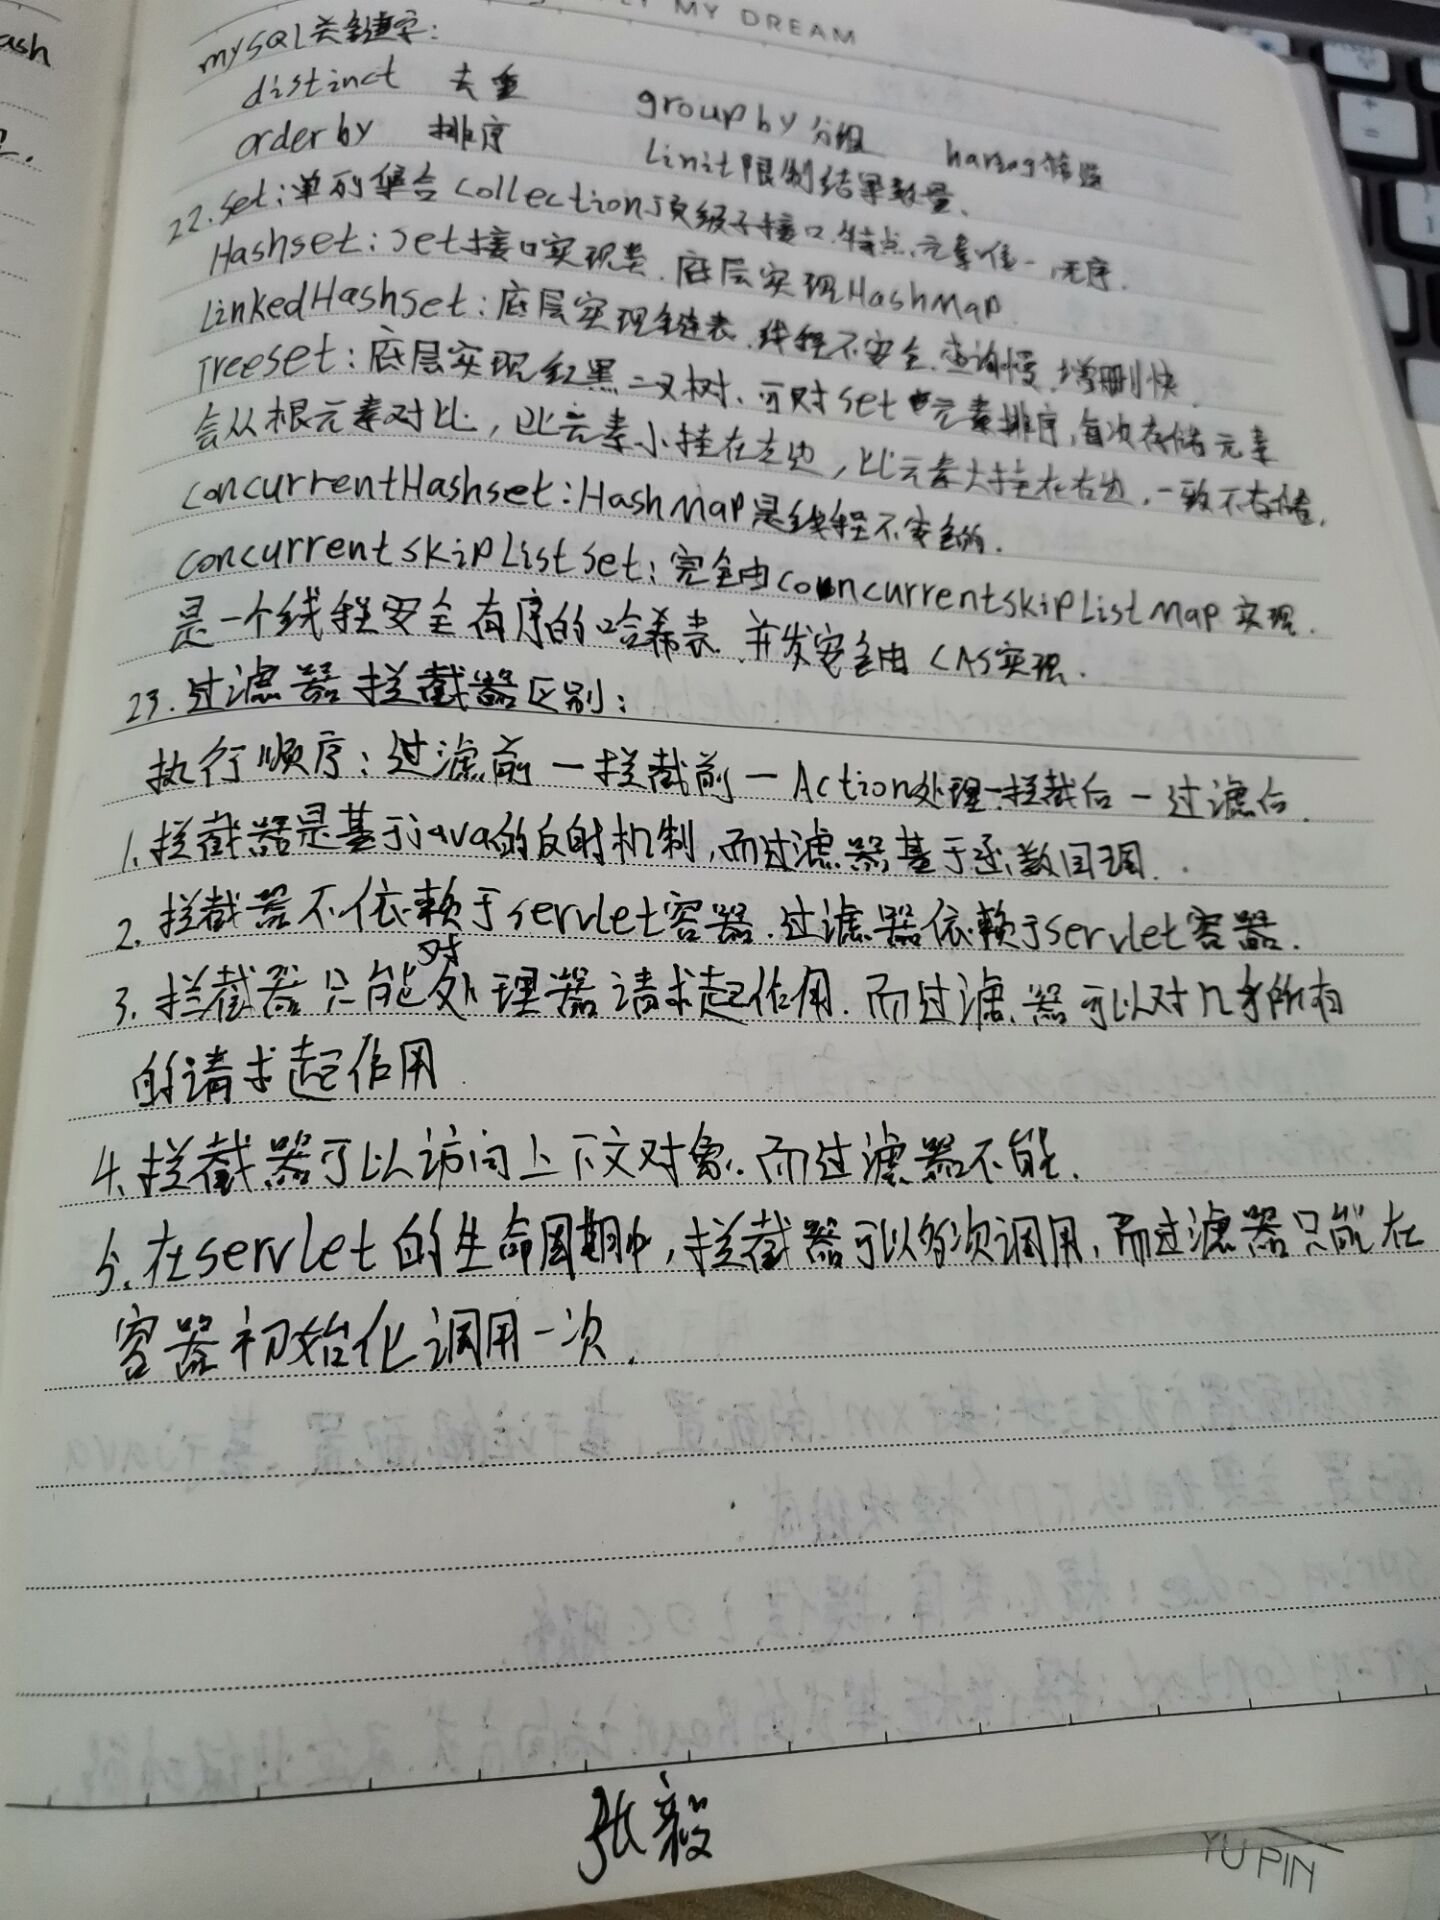 MY DREAM
ash
mysql关键字:
distinct 去重 group by 分组 having 筛选
order by 排序 Limit限制结果数量.
22. set: 单列集合Collection顶级子接口.特点、元素唯一,无序.
Hashset: set接口实现类. 底层实现HashMap.
LinkedHashset: 底层实现链表.线程不安全.查询慢.增删快.
Treeset: 底层实现红黑二叉树、可对set中元素排序,每次存储元素
会从根元素对比,比元素小挂在左边,比元素大挂在右边.一致不存储.
concurrentHashset: HashMap是线程不安全的.
concurrentskipListset: 完全由concurrentskipListMap实现.
是一个线程安全有序的哈希表.并发安全由CAS实现.
23.过滤器 拦截器区别:
执行顺序: 过滤前-拦截前-Action处理-拦截后-过滤后.
1.拦截器是基于java的反射机制,而过滤器基于函数回调.
2.拦截器不依赖于servlet容器.过滤器依赖于servlet容器.
3.拦截器只能对处理器请求起作用.而过滤器可以对几乎所有
的请求起作用.
4.拦截器可以访问上下文对象.而过滤器不能.
5.在servlet的生命周期中,拦截器可以多次调用,而过滤器只能在
容器初始化调用一次.
张毅
YU PIN